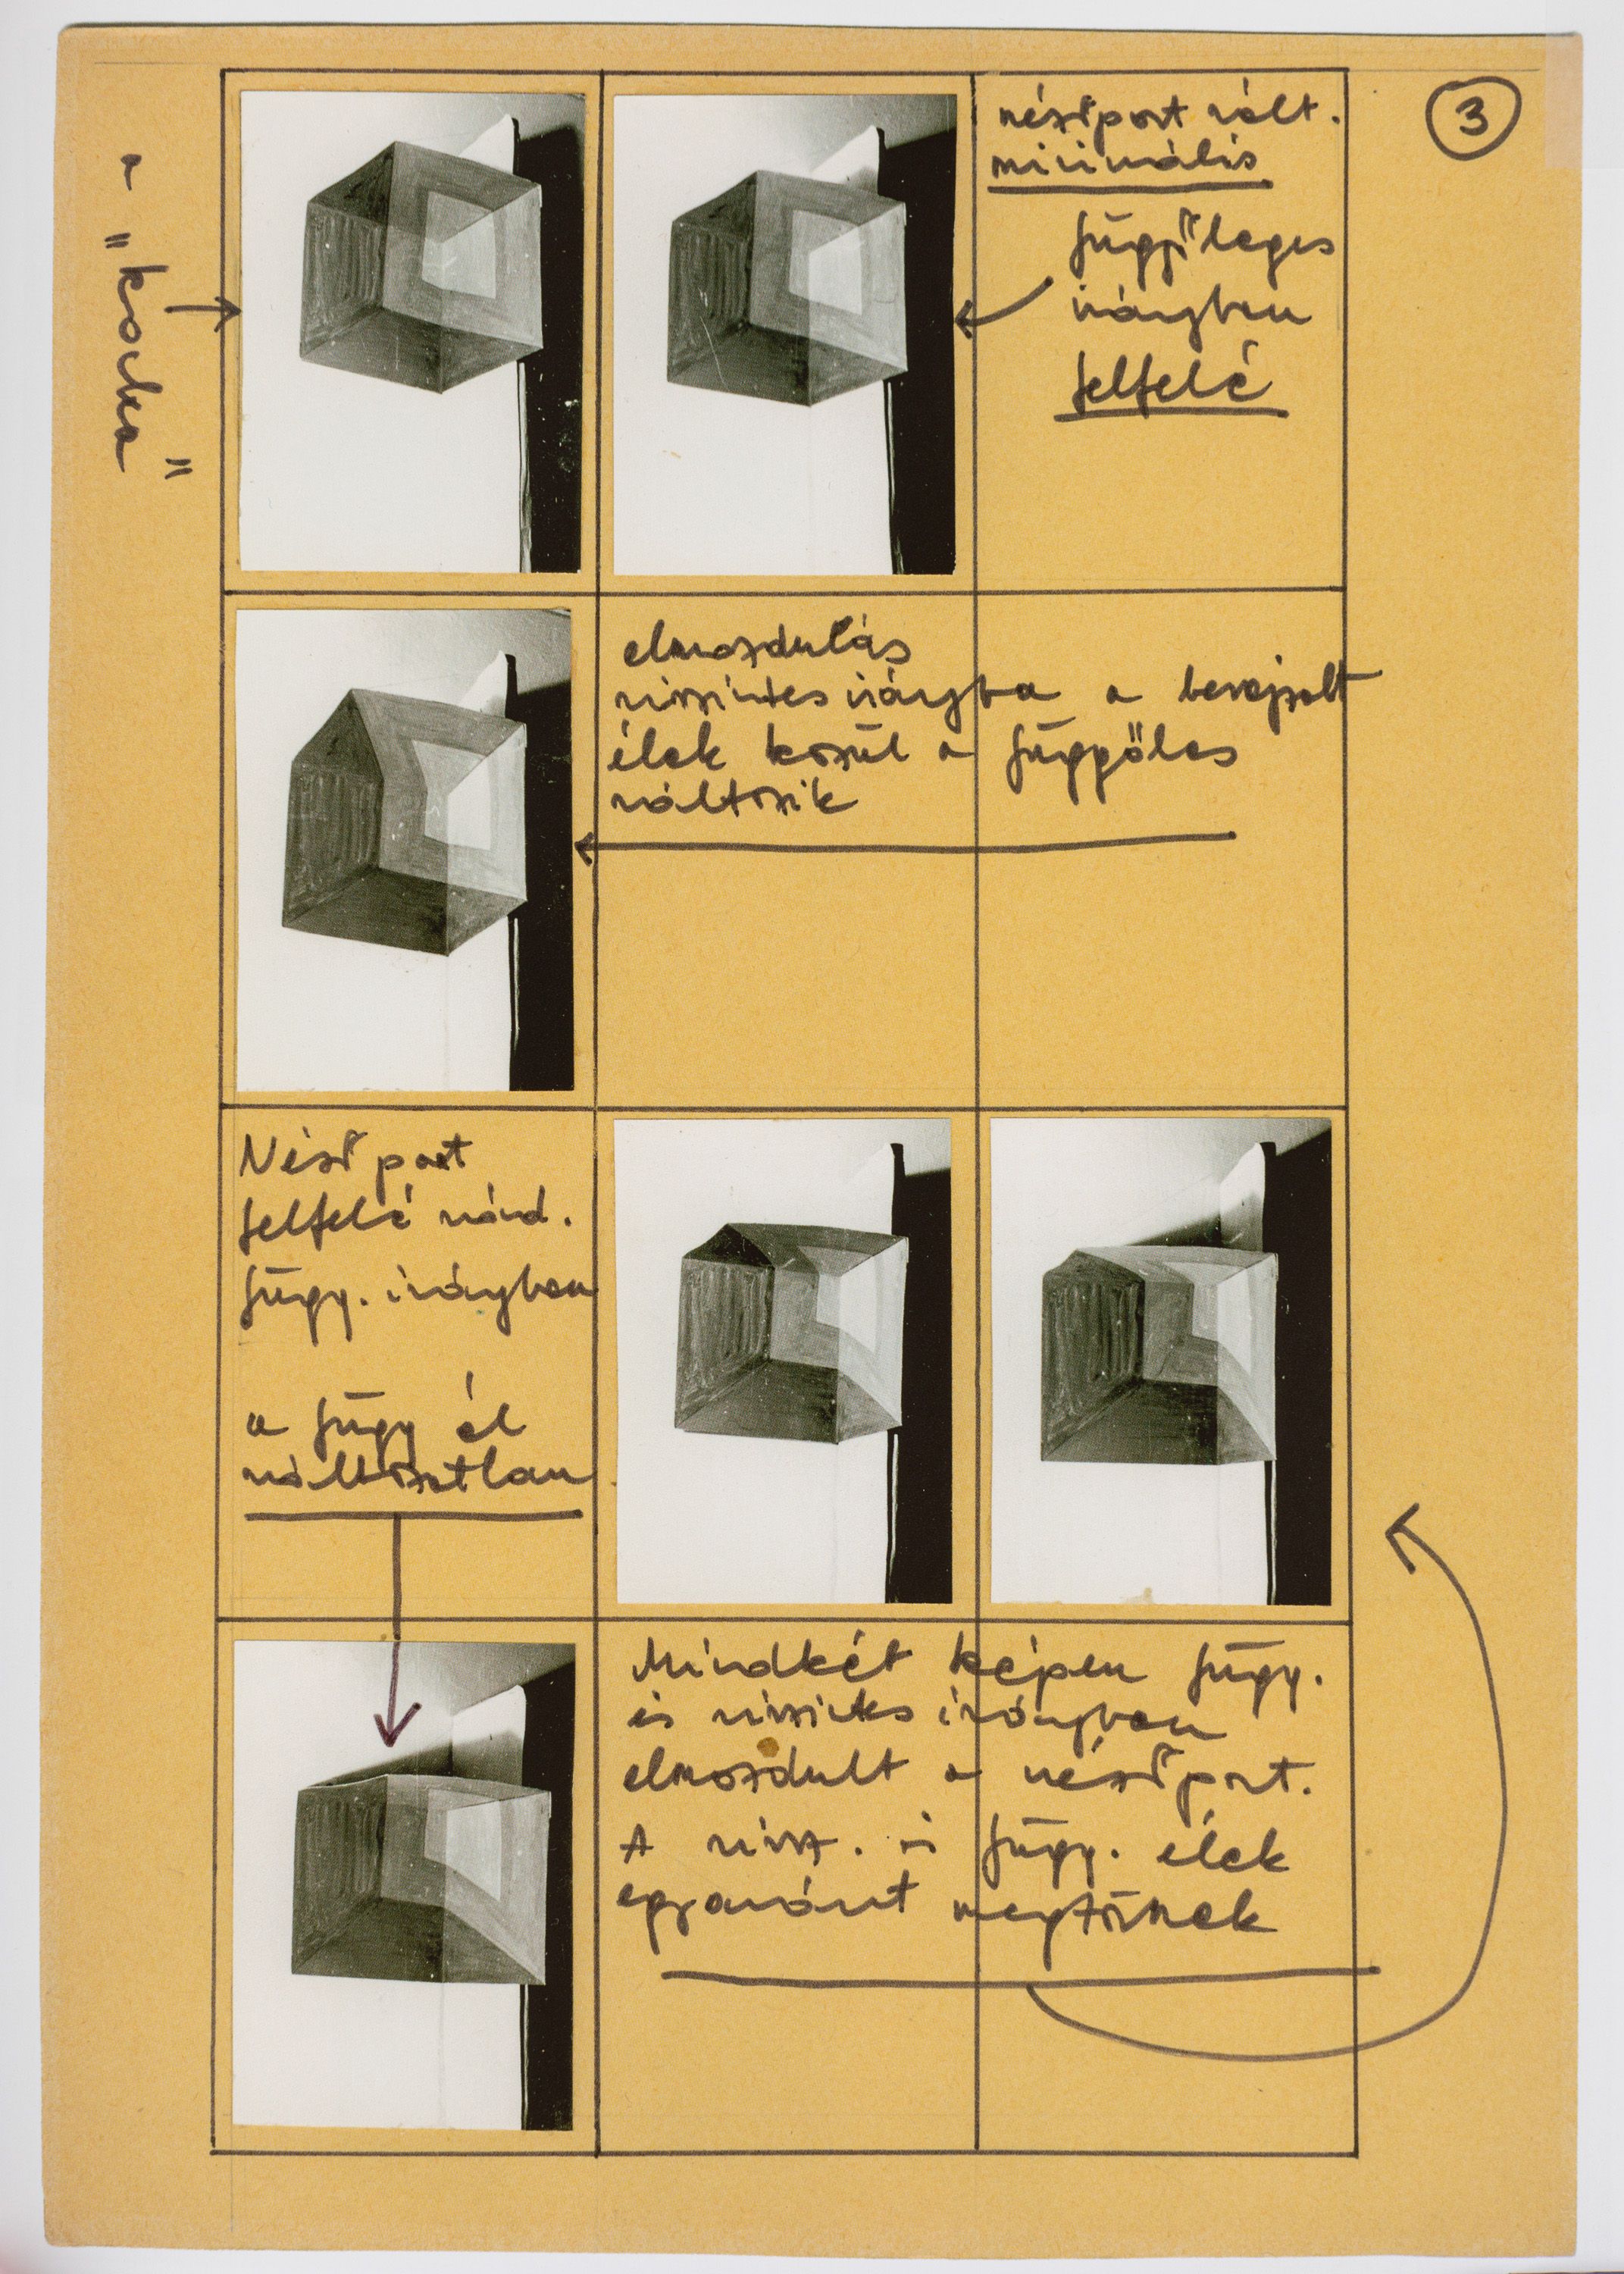 3
a "kocka"
nézőpont vált.
minimális
függőleges
irányban
felfelé
elmozdulás
vízszintes irányba a berajzolt
élek közül a függőleges
változik
Nézőpont
felfelé mozd.
függ. irányban
a függ él
változatlan
Mindkét képen függ.
és vízszintes irányban
elmozdult a nézőpont.
A vízsz. és függ. élek
egyaránt megtörnek